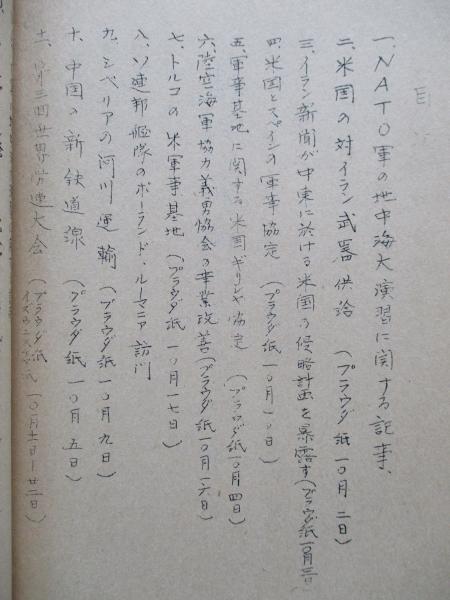 目
一、NATO軍の地中海大演習に関する記事、
二、米国の対イラン武器供給 (プラウダ紙一〇月二日)
三、イラン新聞が中東に於ける米国の侵略計画を暴露す(プラウダ紙一〇月三日)
四、米国とスペインの軍事協定 (プラウダ紙一〇月一〇日)
五、軍事基地に関する米国ギリシヤ協定 (プラウダ紙一〇月四日)
六、陸空海軍協力義勇協会の事業改善(プラウダ紙一〇月一六日)
七、トルコの米軍事基地 (プラウダ紙一〇月一七日)
八、ソ連邦艦隊のポーランド・ルーマニア訪問
九、シベリアの河川運輸 (プラウダ紙一〇月九日)
十、中国の新鉄道線 (プラウダ紙一〇月五日)
十一、第三回世界労連大会 (プラウダ紙 イズヴェスチヤ紙 一〇月十一日ー廿二日)